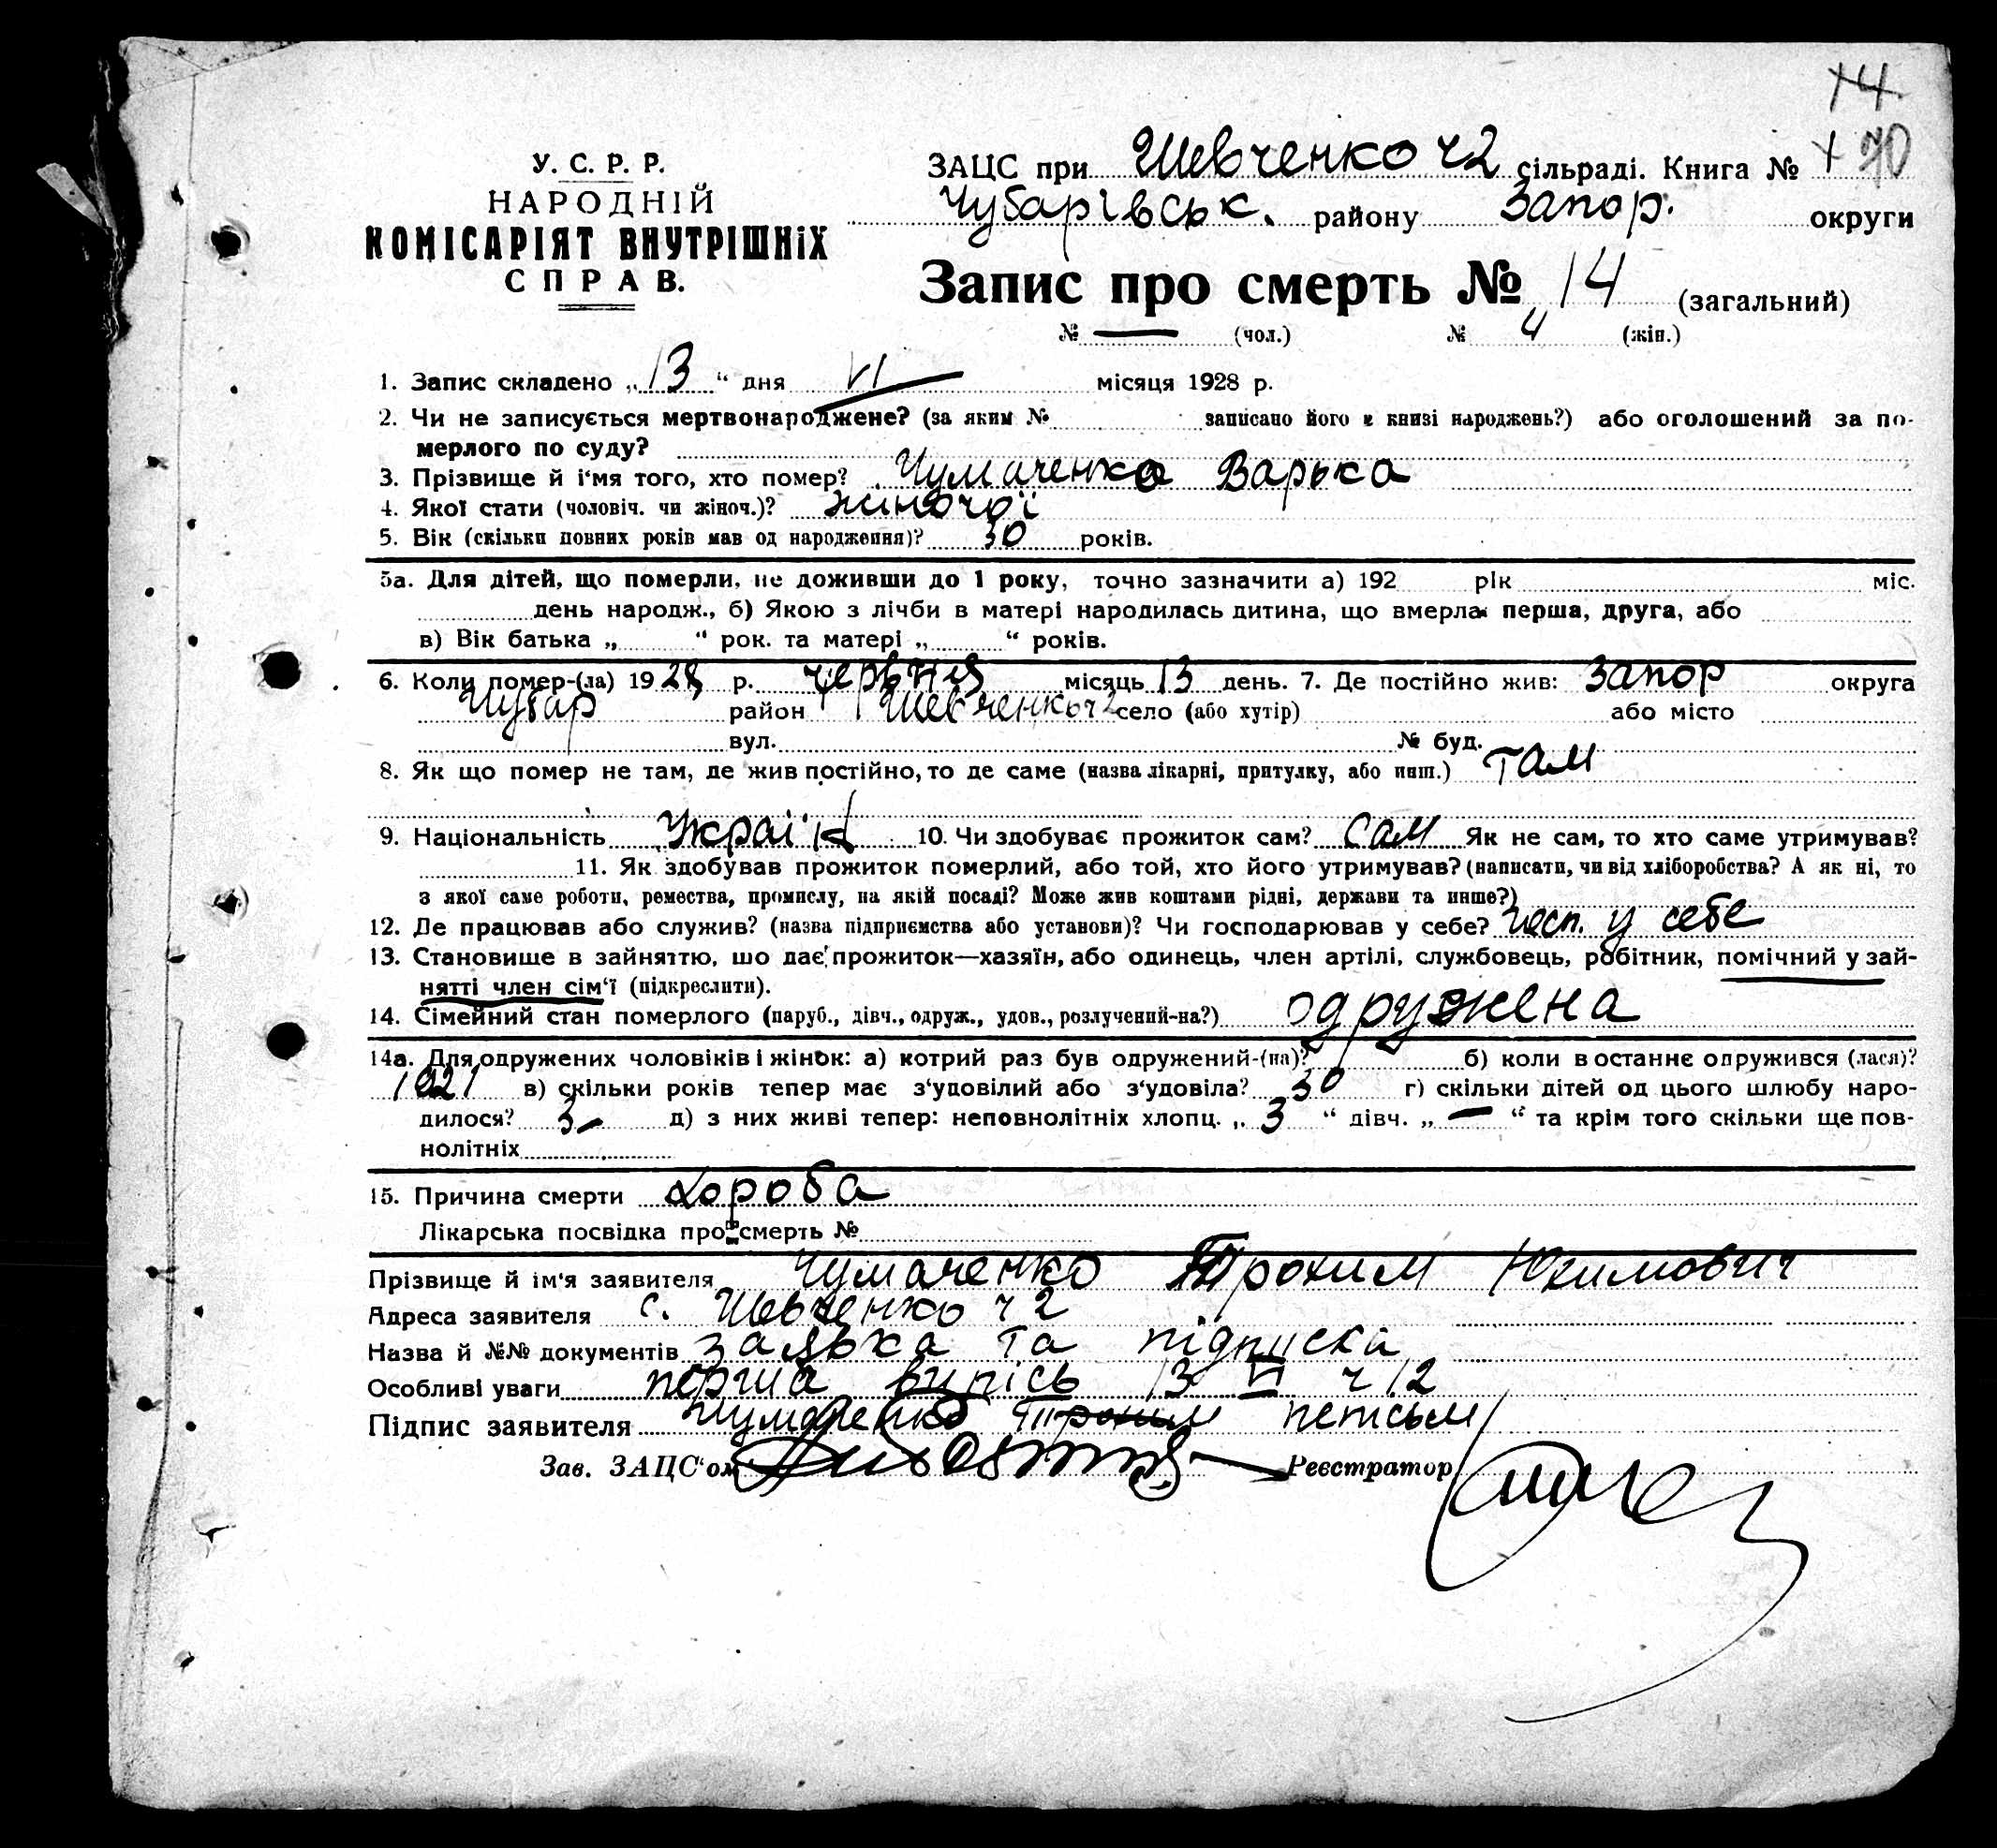 14
У. С. Р. Р.
НАРОДНІЙ
КОМІСАРІЯТ ВНУТРІШНІХ
СПРАВ.
ЗАЦС при Шевченко ч2 сільраді. Книга № 70
Чубарівськ. району Запор. округи
Запис про смерть № 14 (загальний)
№ — (чол.) № 4 (жін.)
1. Запис складено „13“ дня VI місяця 1928 р.
2. Чи не записується мертвонароджене? (за яким № записано його в книзі народжень?) або оголошений за по-
мерлого по суду?
3. Прізвище й і'мя того, хто помер? Чумаченко Варька
4. Якої стати (чоловіч. чи жіноч.)? жиночої
5. Вік (скільки повних років мав од народження)? 30 років.
5а. Для дітей, що померли, не доживши до 1 року, точно зазначити а) 192 рік міс.
день народж., б) Якою з лічби в матері народилась дитина, що вмерла: перша, друга, або
в) Вік батька „ “ рок. та матері „ “ років.
6. Коли помер-(ла) 1928 р. червня місяць 13 день. 7. Де постійно жив: Запор округа
Чубар район Шевченко ч2 село (або хутір) або місто
вул. № буд.
8. Як що помер не там, де жив постійно, то де саме (назва лікарні, притулку, або инш.) там
9. Національність Україн 10. Чи здобуває прожиток сам? сам Як не сам, то хто саме утримував?
11. Як здобував прожиток померлий, або той, хто його утримував? (написати, чи від хліборобства? А як ні, то
з якої саме роботи, ремества, промислу, на якій посаді? Може жив коштами рідні, держави та инше?)
12. Де працював або служив? (назва підприємства або установи)? Чи господарював у себе? госп. у себе
13. Становище в зайняттю, що дає прожиток—хазяїн, або одинець, член артілі, службовець, робітник, помічний у зай-
нятті член сім'ї (підкреслити).
14. Сімейний стан померлого (паруб., дівч., одруж., удов., розлучений-на?) одружена
14а. Для одружених чоловіків і жінок: а) котрий раз був одружений-(на)? б) коли востаннє одружився (лася)?
1921 в) скільки років тепер має з'удовілий або з'удовіла? 30 г) скільки дітей од цього шлюбу наро-
дилося? 3 д) з них живі тепер: неповнолітніх хлопц. „3“ дівч. „—“ та крім того скільки ще пов-
нолітніх
15. Причина смерти хороба
Лікарська посвідка про смерть №
Прізвище й ім'я заявителя Чумаченко Трохим Юхимович
Адреса заявителя с. Шевченко ч 2
Назва й №№ документів заявка та підписка
Особливі уваги перша випись 13 VI ч 12
Підпис заявителя Чумаченко Трохим
Зав. ЗАЦС'ом Реєстратор